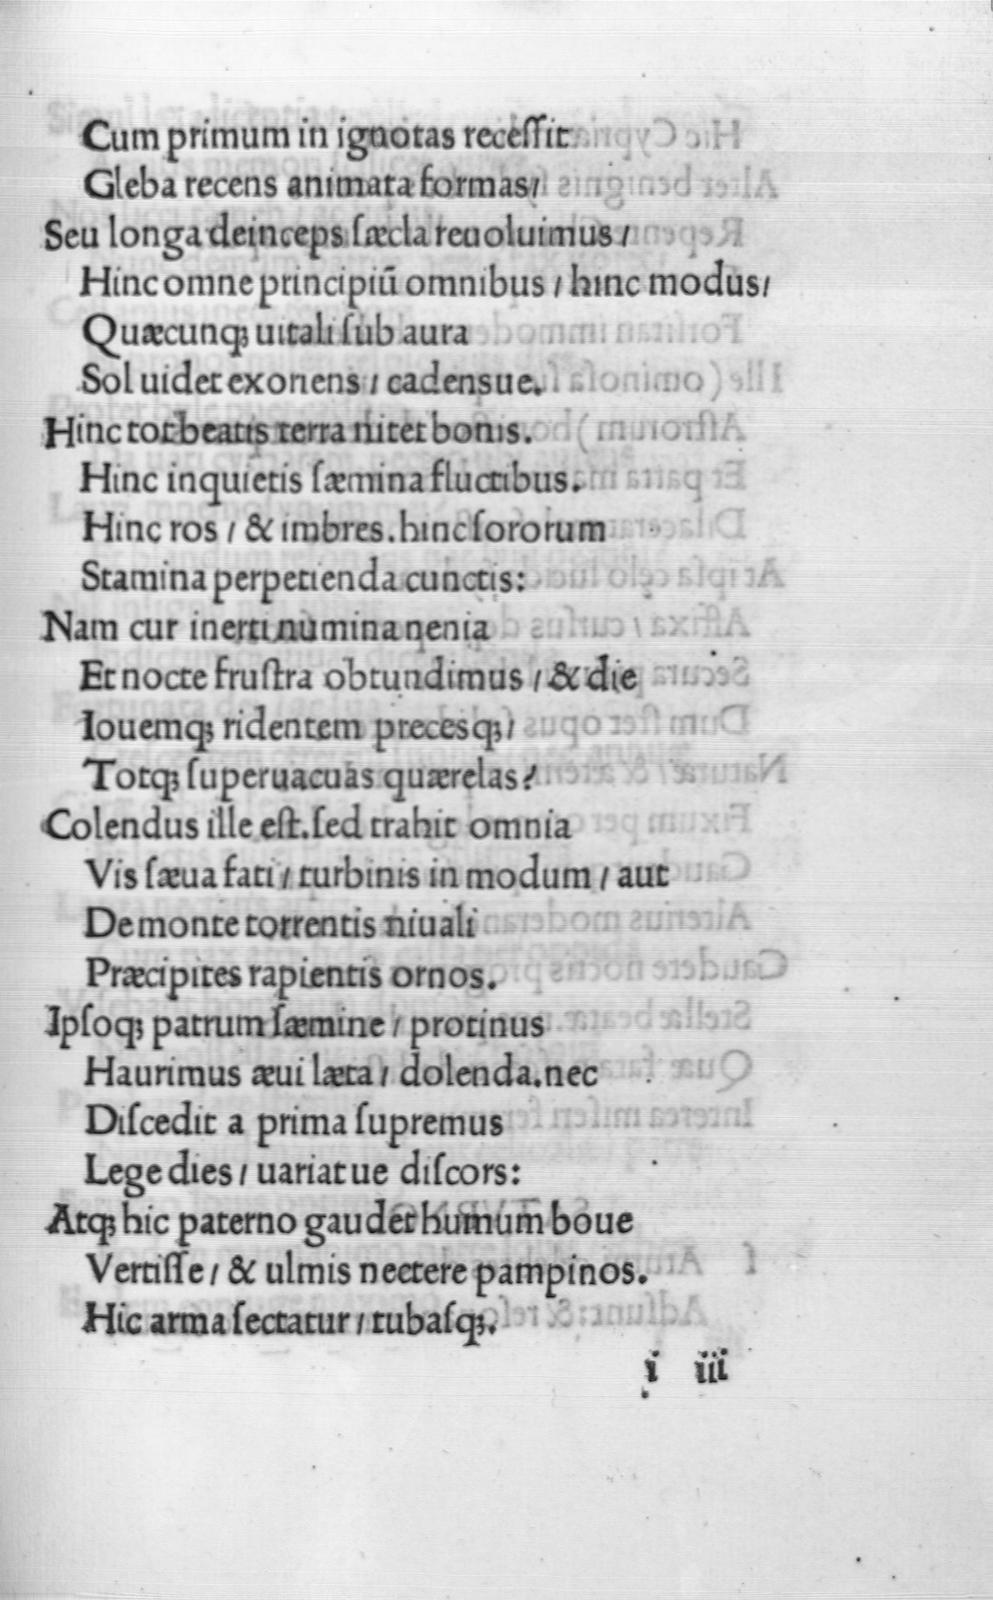 Cum primum in ignotas receſſit
Gleba recens animata formas/
Seu longa deinceps ſæcla reuoluimus/
Hinc omne principiū omnibus/hinc modus/
Quæcunqꝫ uitali ſub aura
Sol uidet exoriens/cadensue.
Hinc tot beatis terra nitet bonis.
Hinc inquietis ſæmina fluctibus.
Hinc ros/& imbres.hinc ſororum
Stamina perpetienda cunctis:
Nam cur inerti numina nenia
Et nocte fruſtra obtundimus/& die
Iouemqꝫ ridentem precesqꝫ/
Totqꝫ ſuperuacuas quærelas?
Colendus ille eſt.ſed trahit omnia
Vis ſæua fati/turbinis in modum/aut
De monte torrentis niuali
Præcipites rapientis ornos.
Ipſoqꝫ patrum ſæmine/protinus
Haurimus æui læta/dolenda.nec
Diſcedit a prima ſupremus
Lege dies/uariatue diſcors:
Atqꝫ hic paterno gaudet humum boue
Vertiſſe/& ulmis nectere pampinos.
Hic arma ſectatur/tubaſqꝫ.
i iii